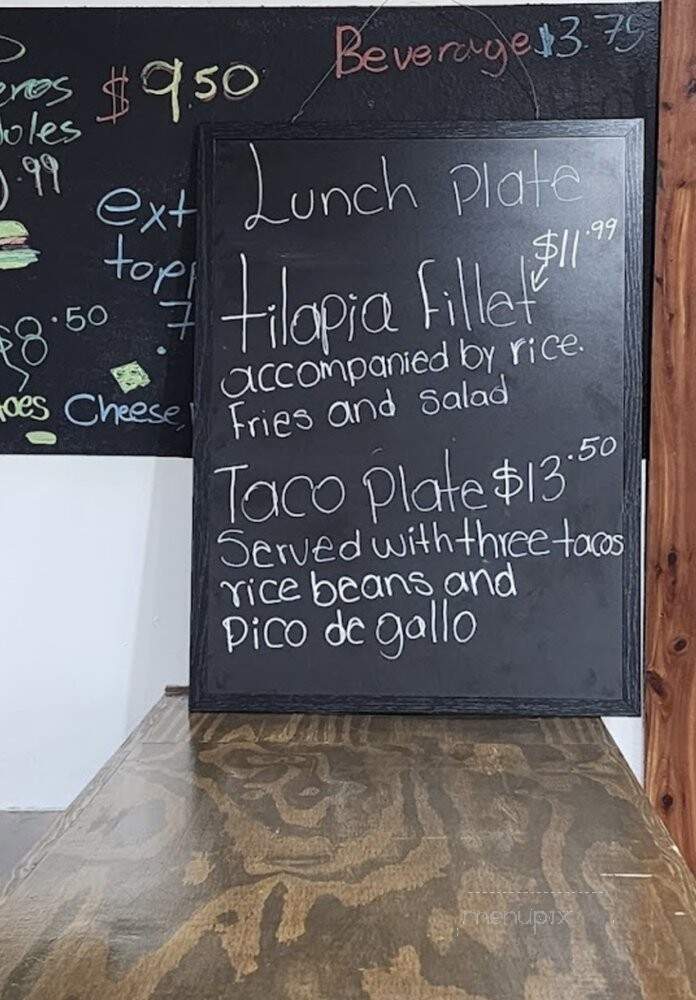 Beverage $3.75
$9.50
.99
ext
$8.50
Cheese,
Lunch plate
$11.99
tilapia fillet
accompanied by rice.
Fries and salad
Taco Plate $13.50
Served with three tacos
rice beans and
pico de gallo
menupix